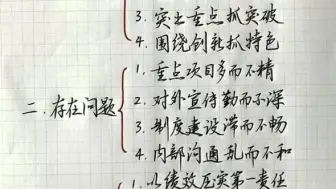 3. 突出重点抓突破
4. 围绕创新抓特色
二. 存在问题
1. 重点项目多而不精
2. 对外宣传勤而不深
3. 制度建设滞而不畅
4. 内部沟通乱而不和
1. 以绩效压实第一责任